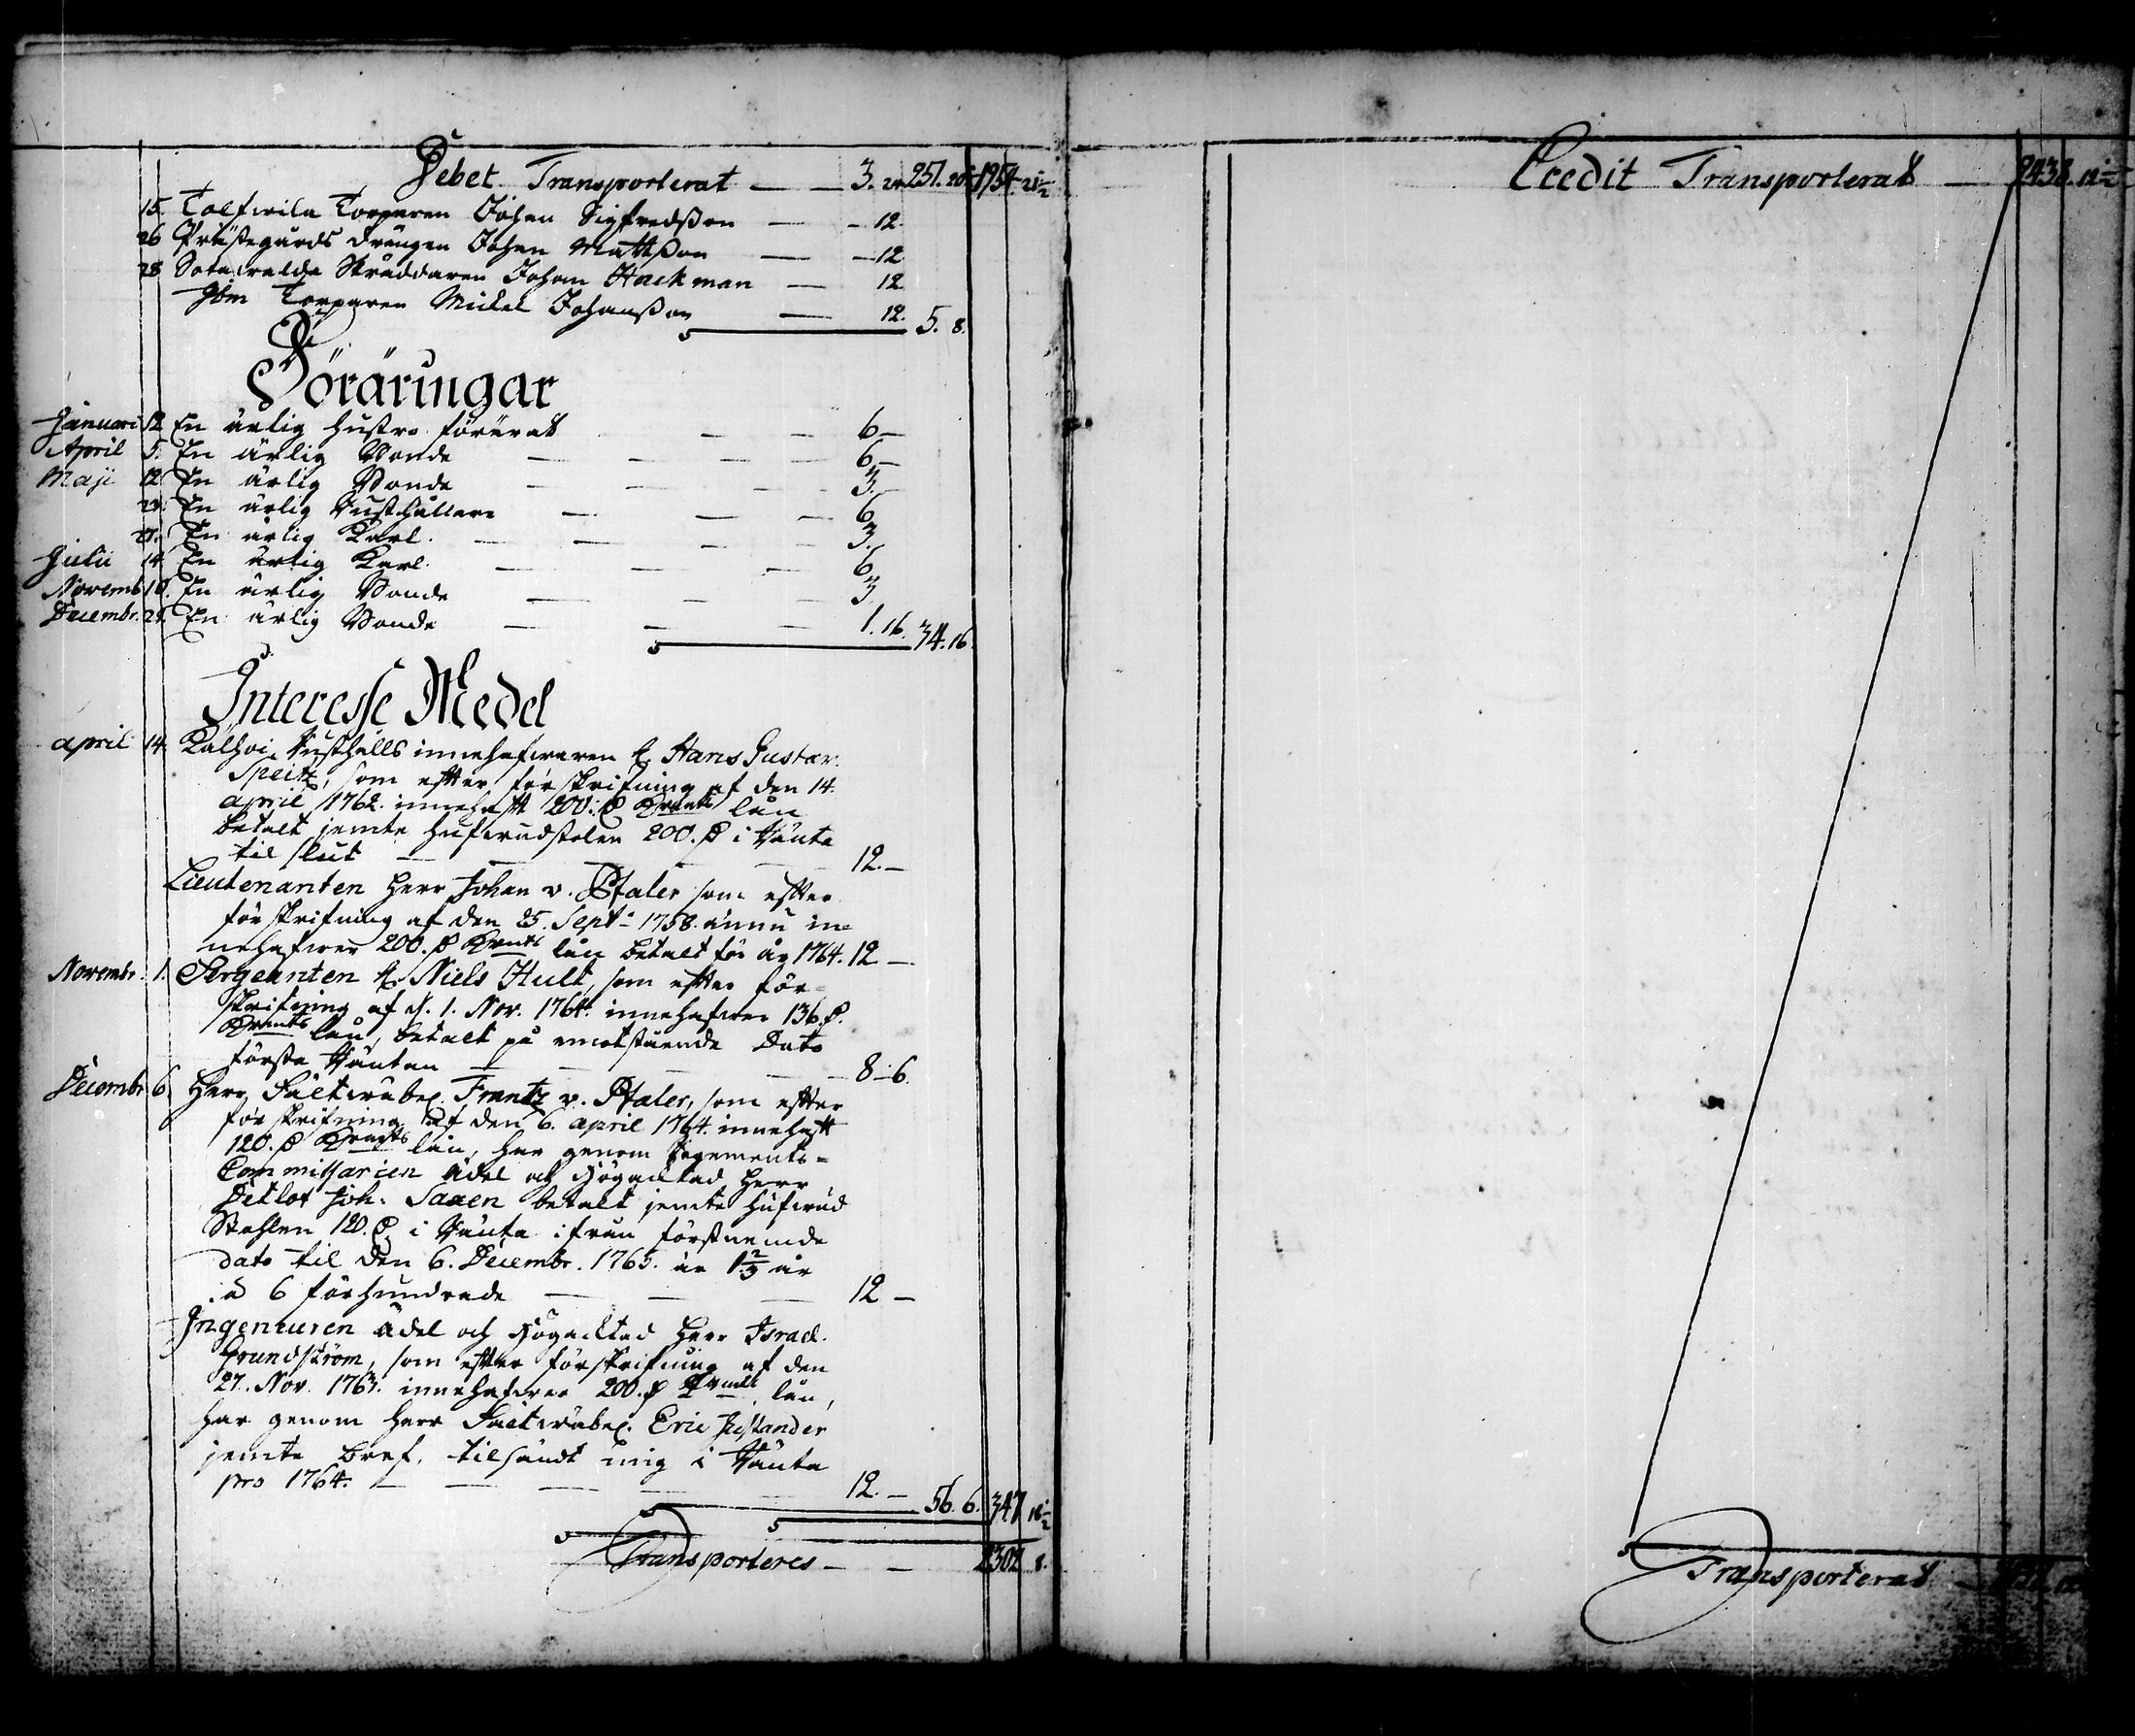 Debet Transporterat — — 3. 24 251. 20 1954. 21½
15. Tolfwila Torparen Johan Sigfredßon — — 12.
26 Prästegårds drängen Johan Mattßon — — 12
28 Skräddaren Johan Hackman — 12
Ibm Torparen Mickel Johanßon — 12. 5. 8.
Föräringar
Januari 12 En ärlig hustro förärat — — 6 —
April 5. En ärlig Bonde — — — — 6 —
Maji 12 En ärlig Bonde — — — 3. —
En ärlig Rusthållare — — — 6
En ärlig Karl. — — — — 3.
Julii 14 En ärlig Karl. — — — 6
Novemb. 10. En ärlig Bonde — — — 3
Decembr. 25. En ärlig Bonde — — — 1. 16. 34. 16.
Interesse Medel
april 14. Kalhoi Rusthålls innehafwaren H. Hans Gustav.
Speitz, som efter förskrifning af den 14.
april 1762. innehaft 200. D Krmts lån
betalt jemte hufwudstolen 200. D i Ränta
til slut — — — 12. —
Lieutenanten Herr Johan v. Pfaler som efter
förskrifning af den 25. Sept. 1758. ännu in=
nehafwer 200. D Krmts lån betalt för år 1764. 12 —
Novembr. 1. Sergeanten H. Niels Hult, som efter för=
skrifning af d. 1. Nov. 1764. innehafwer 136. D.
Krmts lån, betalt på emotstående Dato
första Räntan — — — — 8 — 6.
Decembr. 6. Herr Fältwäbel. Frantz v. Pfaler, som efter
förskrifning af den 6. april 1764. innehaft
120. D Krmts lån, har genom Regements=
Commissarien Ädel och Högacktad Herr
Detlof Joh. Saxen betalt jemte hufwud
Stohlen 120. D. i Ränta ifrån förstnemde
dato til den 6. Decembr. 1765. är 1⅔ år
à 6 förhundrade — — — 12 —
Ingenieuren Ädel och Högacktad Herr Israel.
Grundström, som efter förskrifning af den
27. Nov. 1763. innehafwer 200. D Krmts lån,
har genom Herr Fältwäbel. Eric Justander
jemte bref, tilsändt mig i Ränta
pro 1764. — — — — 12. — 56. 6. 347 18½
Transporteres — — 2302 8.
Credit Transporterat — 2438. 12½
Transporterat